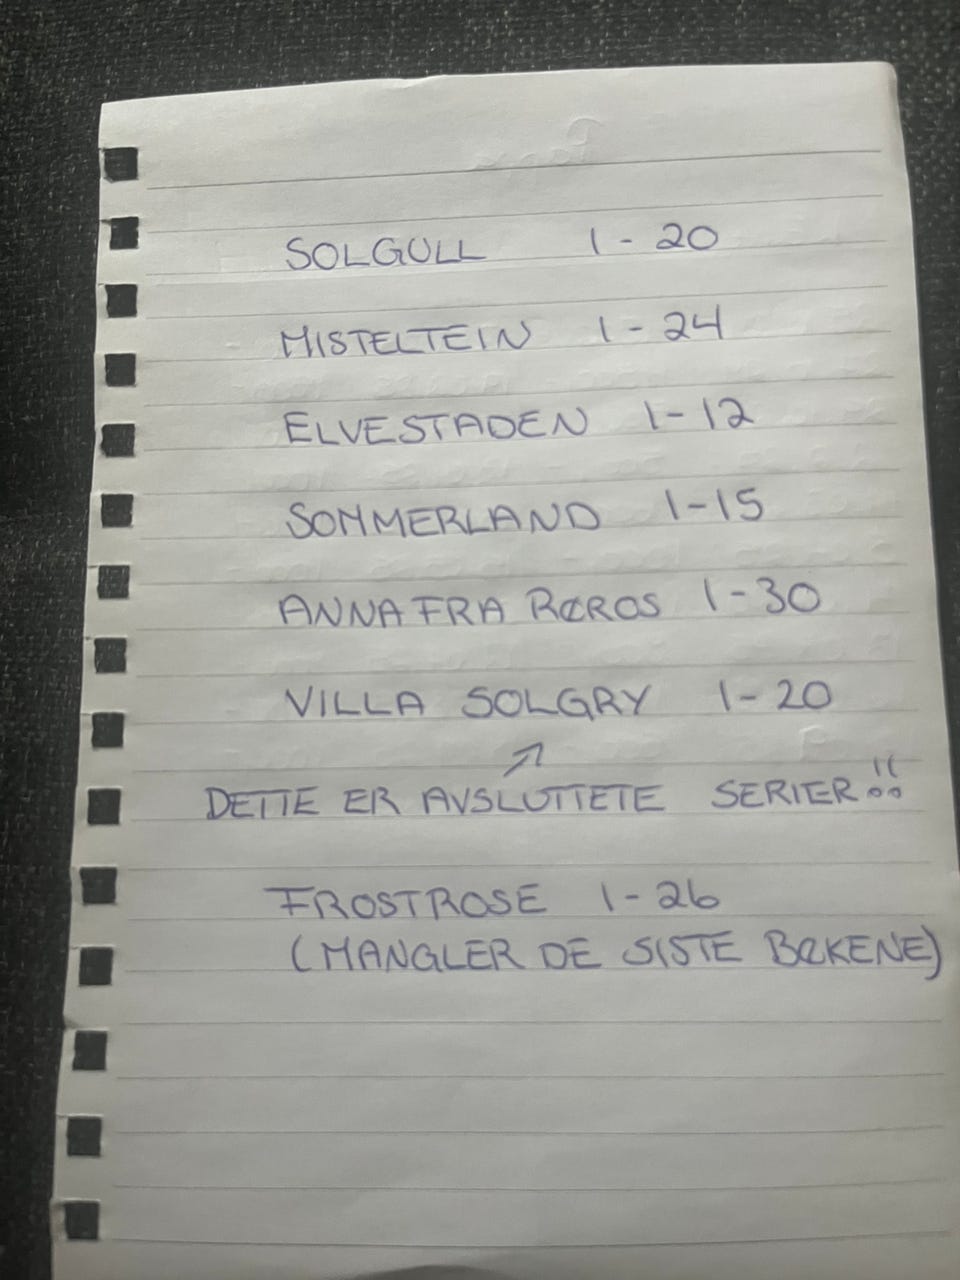 SOLGULL 1-20
MISTELTEIN 1-24
ELVESTADEN 1-12
SOMMERLAND 1-15
ANNA FRA RØROS 1-30
VILLA SOLGRY 1-20
DETTE ER AVSLUTTETE SERIER!!
FROSTROSE 1-26
(MANGLER DE SISTE BØKENE)